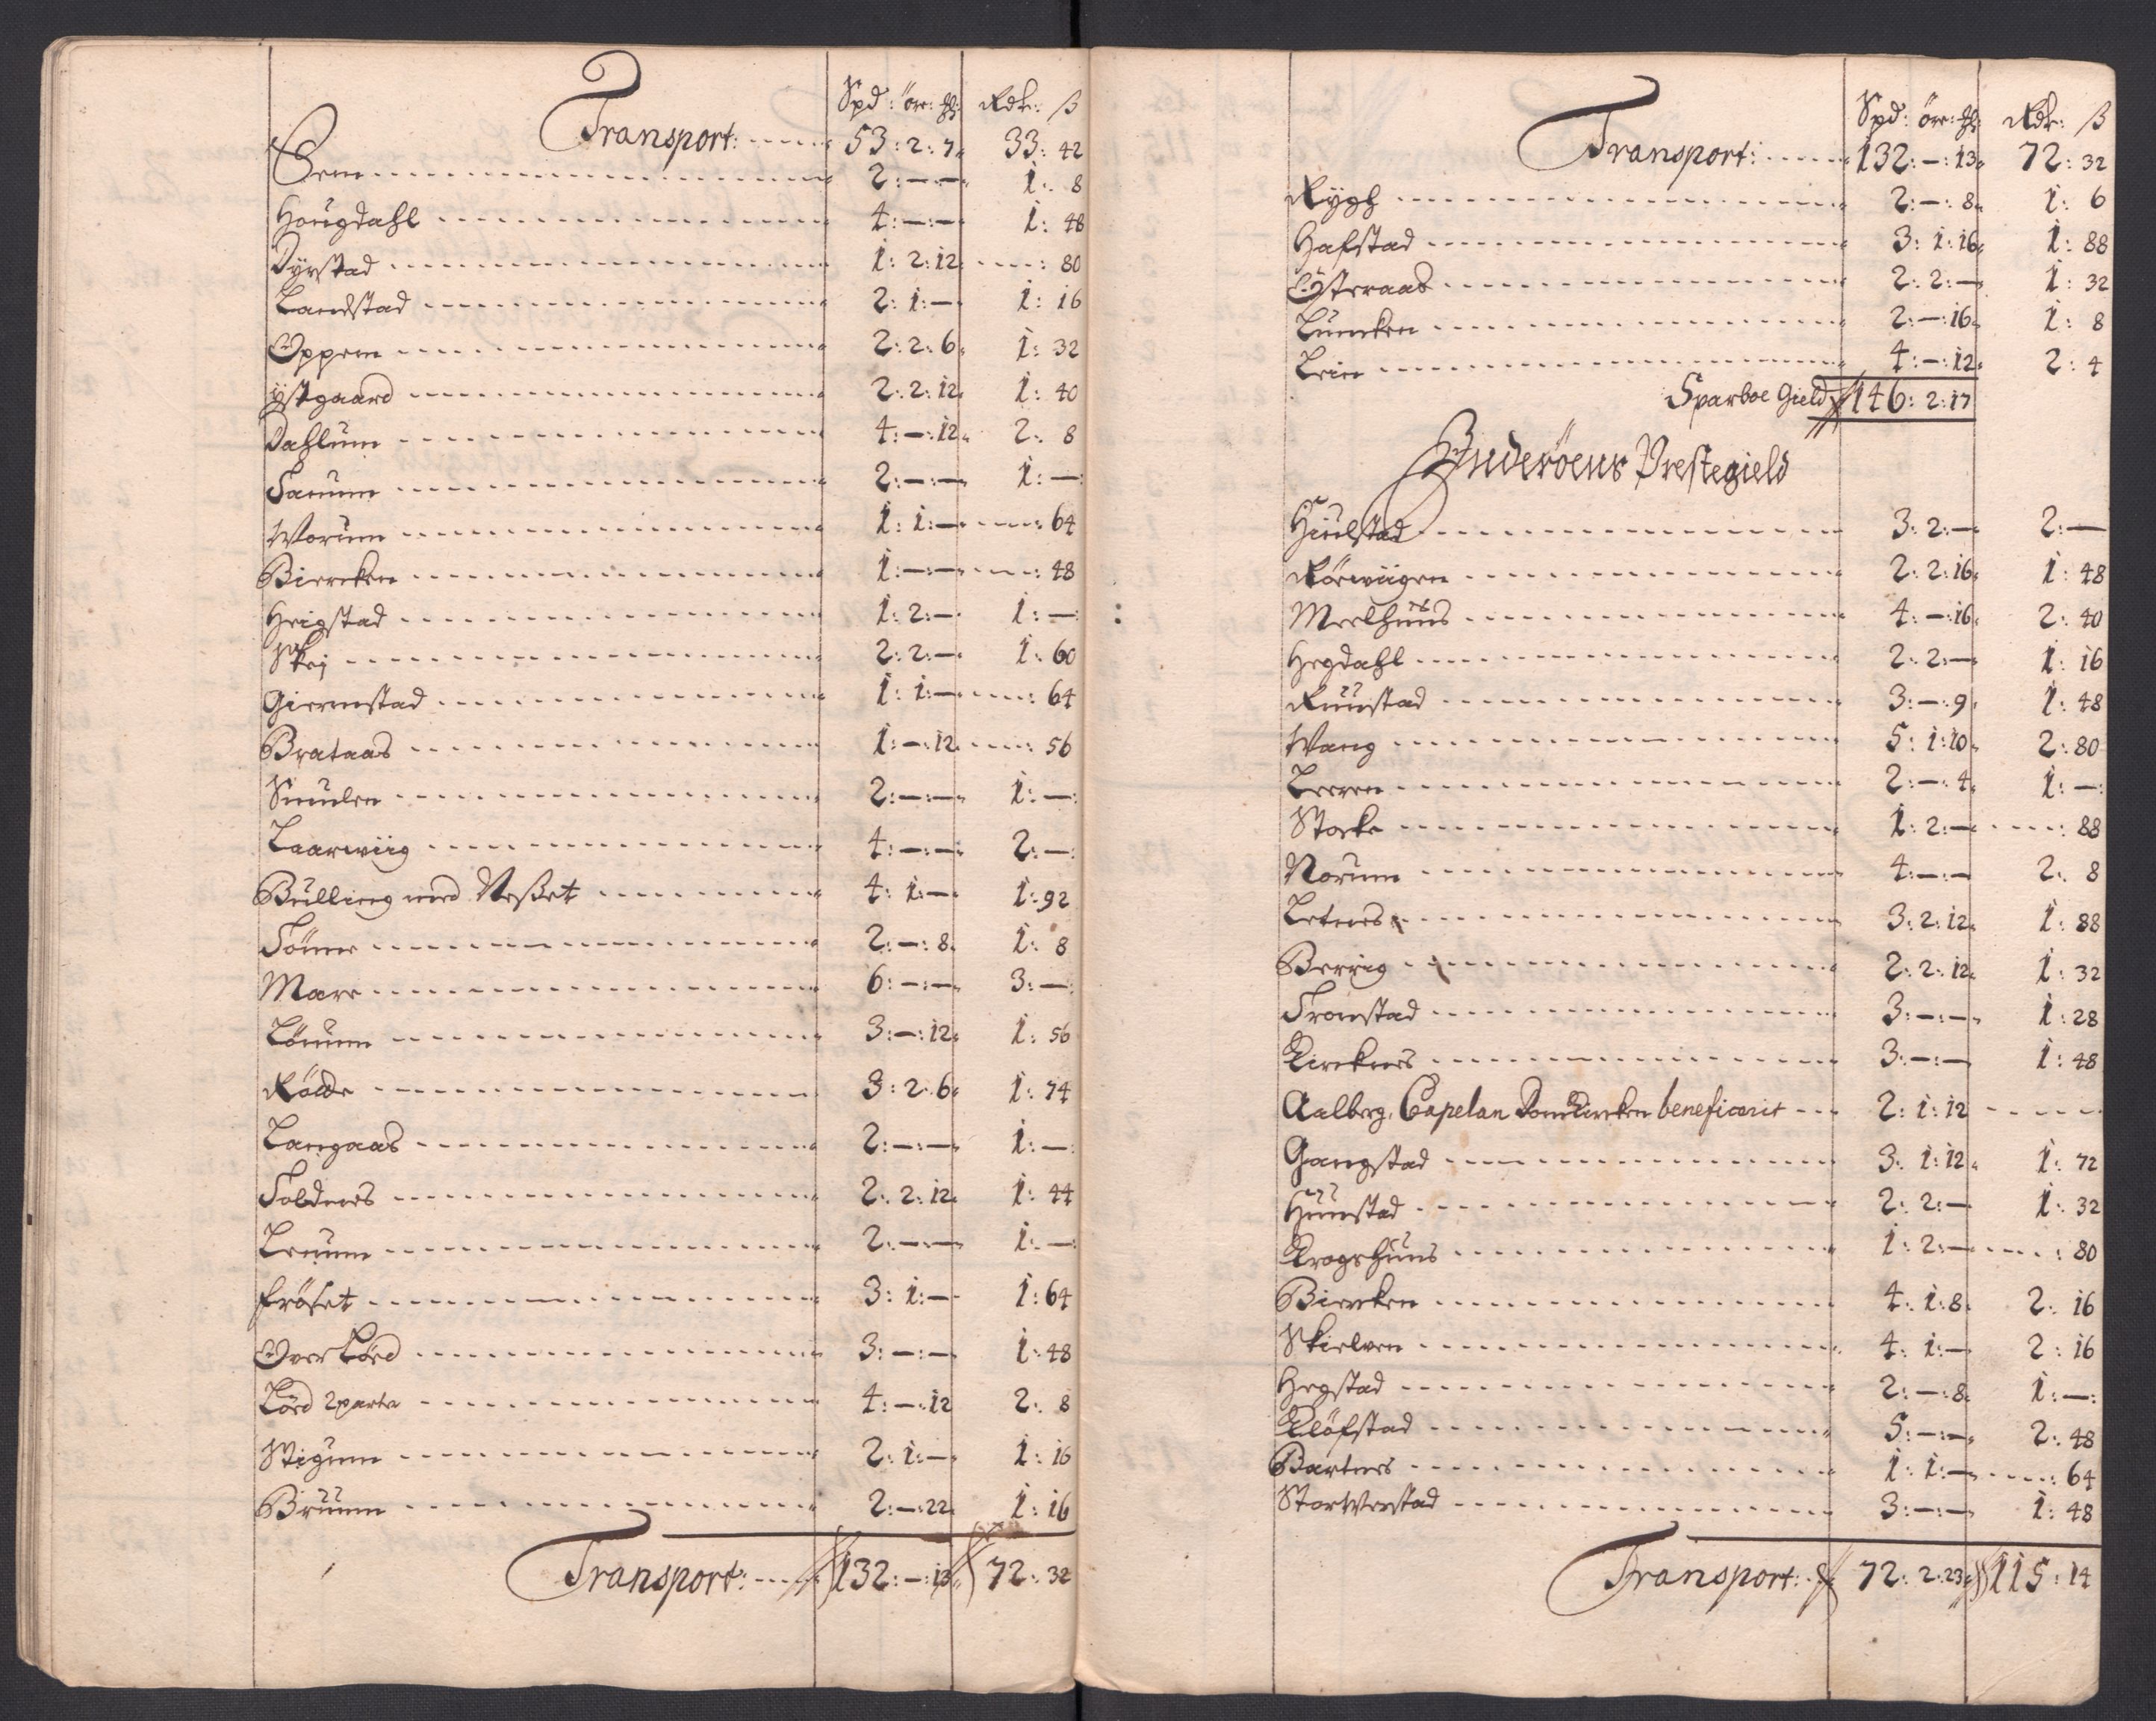 Spd: öre: ℔: Rdr: ß
Transport: 53: 2: 7 33: 42
Eem 2: —: — 1: 8
Hougdahl 4: —: — 1: 48
Dyrstad 1: 2: 12 80
Landstad 2: 1: — 1: 16
Oppem 2: 2: 6 1: 32
ÿstgaard 2: 2: 12 1: 40
Dahlum 4: —: 12 2: 8
Sanum 2: —: — 1: —
Worum 1: 1: — 64
Biercken 1: —: — 48
Heigstad 1: 2: — 1: —
Skej 2: 2: — 1: 60
Giermstad 1: 1: — 64
Brataas 1: —: 12 56
Smulen 2: —: — 1: —
Laarwiig 4: —: — 2: —
Bulling med Neßet 4: 1: — 1: 92
Sönne 2: —: 8 1: 8
Mære 6: —: — 3: —
Lönum 3: —: 12 1: 56
Rödde 3: 2: 6 1: 74
Langaas 2: —: — 1: —
Foldnes 2: 2: 12 1: 44
Leuum 2: —: — 1: —
Fröset 3: 1: — 1: 64
Over Lörd 3: —: — 1: 48
Lörd 2 parter 4: —: 12 2: 8
Stigum 2: 1: — 1: 16
Bruum 2: —: 22 1: 16
Transport: 132: —: 13 72: 32
Spd: öre: ℔: Rdr: ß
Transport: 132: —: 13 72: 32
Rygh 2: —: 8 1: 6
Hafstad 3: 1: 16 1: 88
Österaas 2: 2: — 1: 32
Luncken 2: —: 16 1: 8
Lein 4: —: 12 2: 4
Sparboe Gield 146: 2: 17
Inderöens Prestegield
Hiulstad 3: 2: — 2: —
Rörwiigen 2: 2: 16 1: 48
Meelhuus 4: —: 16 2: 40
Hegdahl 2: 2: — 1: 16
Ruustad 3: —: 9 1: 48
Wang 5: 1: 10 2: 80
Leeren 2: —: 4 1: —
Stocke 1: 2: — 88
Norum 4: —: — 2: 8
Letnes 3: 2: 12 1: 88
Berrig 2: 2: 12 1: 32
Tronstad 3: —: — 1: 28
Kircknes 3: —: — 1: 48
Aalberg, Capelan Domkircken beneficerit 2: 1: 12
Gangstad 3: 1: 12 1: 72
Huustad 2: 2: — 1: 32
Krogshuus 1: 2: — 80
Biercken 4: 1: 8 2: 16
Skielven 4: 1: — 2: 16
Hegstad 2: —: 8 1: —
Klöfstad 5: —: — 2: 48
Bartnes 1: 1: — 64
StorWerstad 3: —: — 1: 48
Transport: 72: 2: 23 115: 14